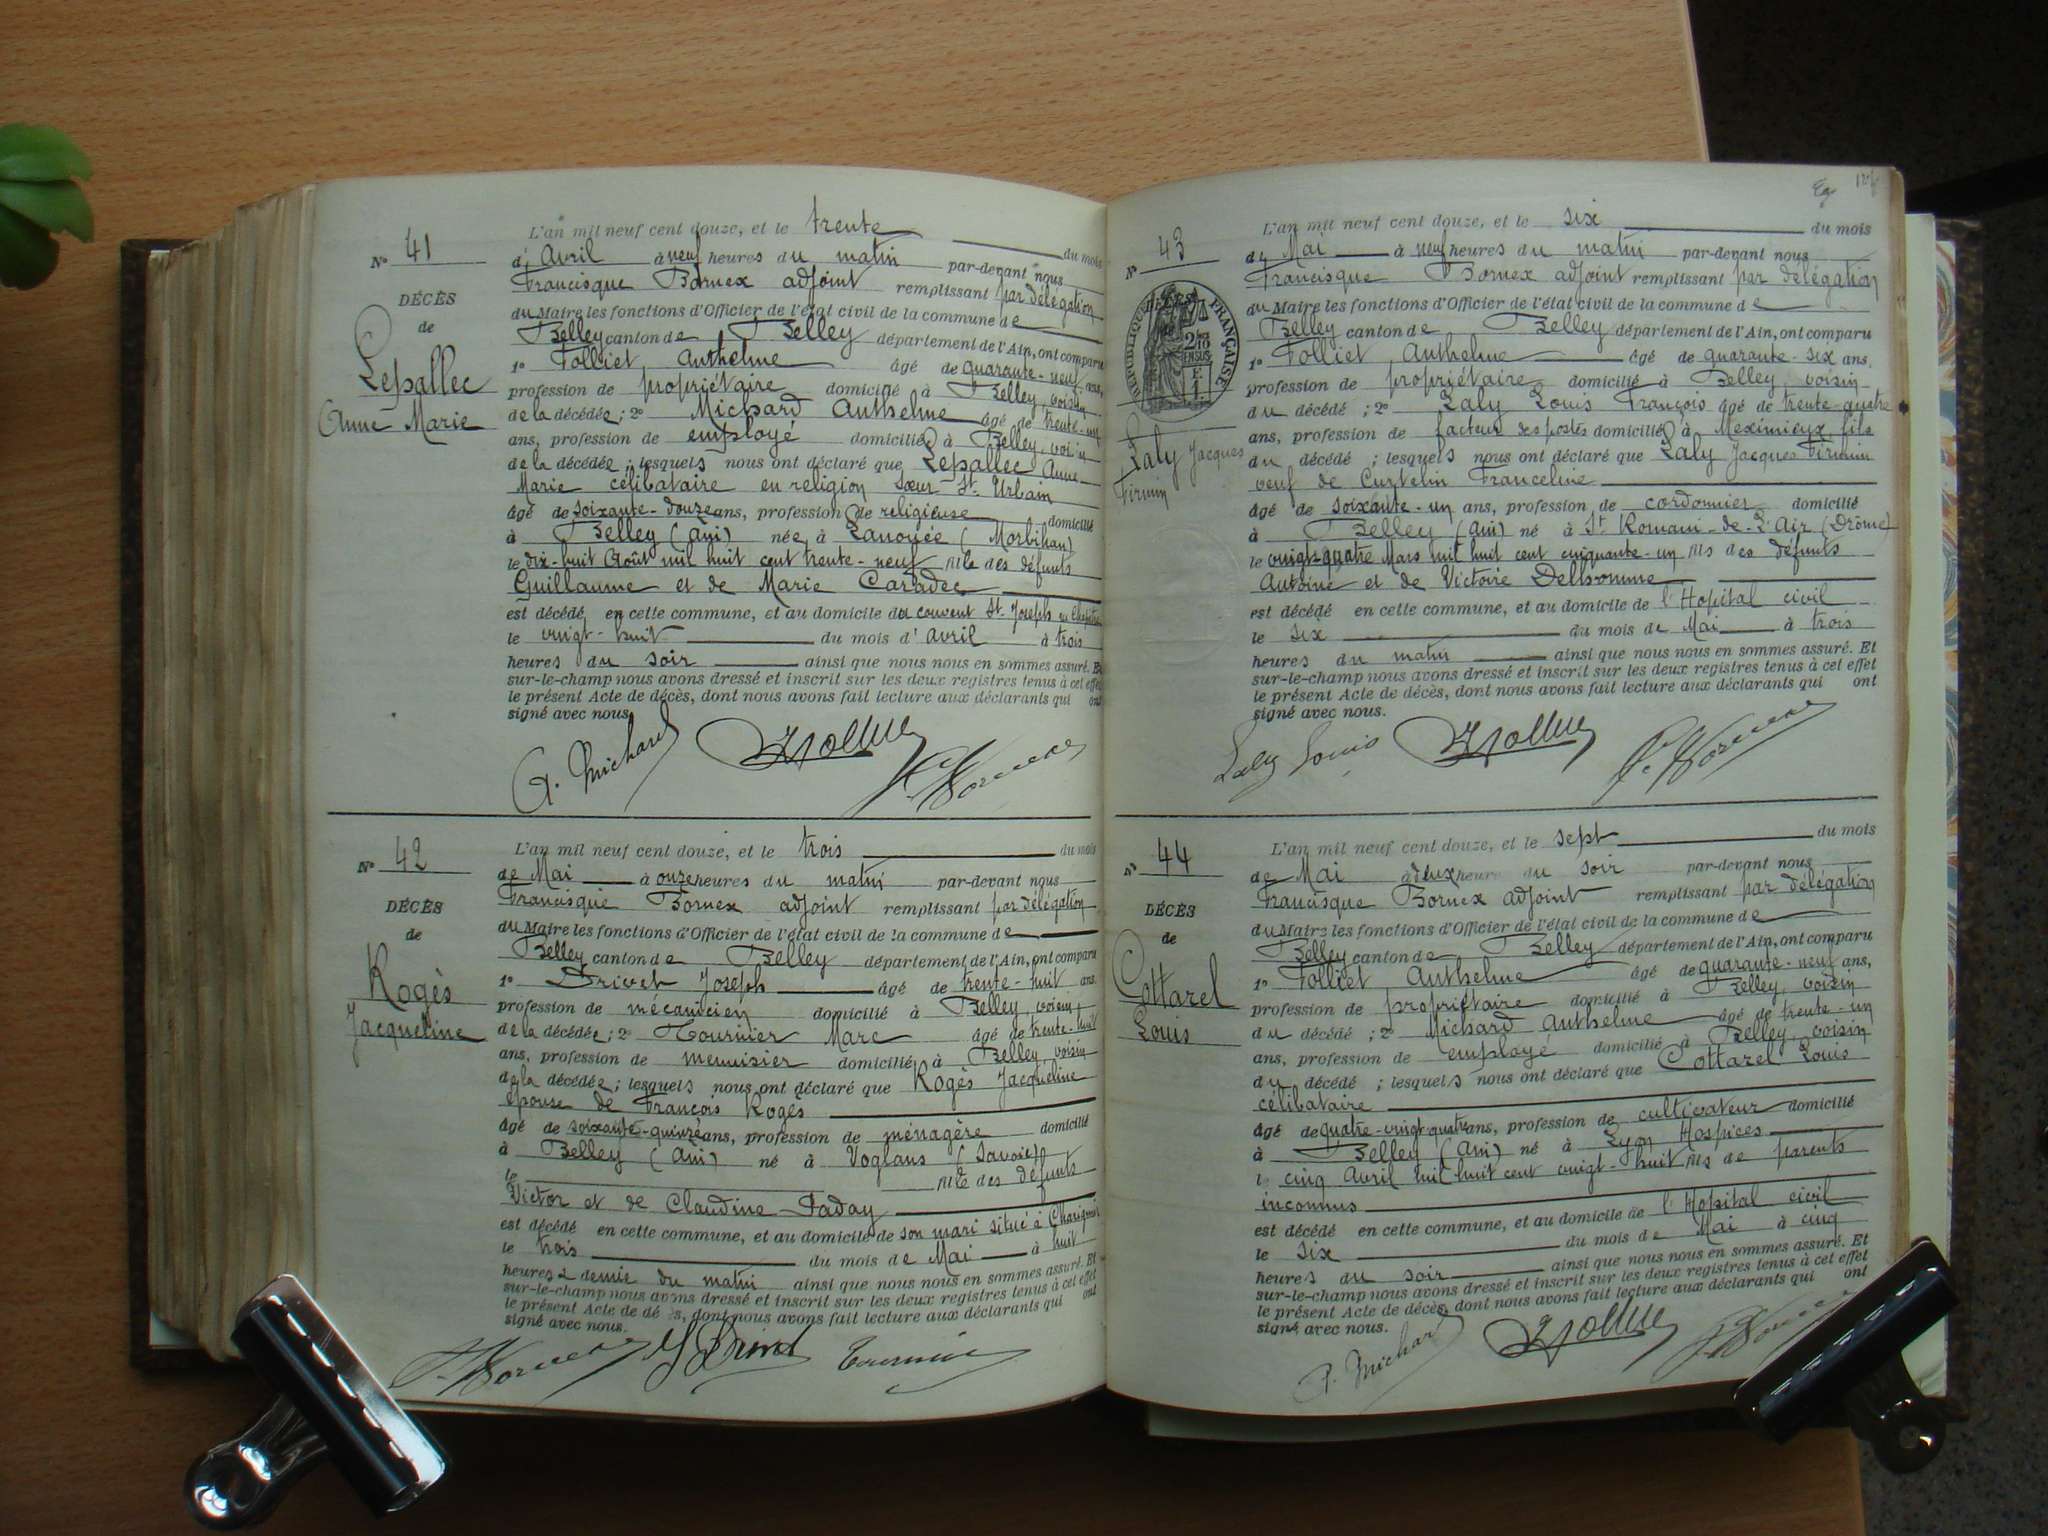 L'an mil neuf cent douze, et le trente du mois
N° 41
d'Avril à neuf heures du matin par-devant nous
Francisque Bornex adjoint remplissant par délégation
DÉCÈS
du Maire les fonctions d'Officier de l'état civil de la commune de
de
Belley canton de Belley département de l'Ain, ont comparu
1° Folliet Anthelme âgé de quarante-neuf ans,
Lepallec
profession de propriétaire domicilié à Belley, voisin
Anne Marie
de la décédée; 2° Michard Anthelme âgé de trente-un
ans, profession de employé domicilié à Belley, voisin
de la décédée; lesquels nous ont déclaré que Lepallec Anne
Marie célibataire en religion Sœur St. Urbain
âgé de soixante-douze ans, profession de religieuse domicilié
à Belley (Ain) née à Lanouée (Morbihan)
le dix-huit Août mil huit cent trente-neuf fille des défunts
Guillaume et de Marie Caradec
est décédé en cette commune, et au domicile du couvent St. Joseph
le vingt-huit du mois d'avril à trois
heures du soir ainsi que nous nous en sommes assuré. Et
sur-le-champ nous avons dressé et inscrit sur les deux registres tenus à cet effet
le présent Acte de décès, dont nous avons fait lecture aux déclarants qui ont
signé avec nous.
A. Michard Folliet F. Bornex
L'an mil neuf cent douze, et le trois du mois
N° 42
de Mai à onze heures du matin par-devant nous
Francisque Bornex adjoint remplissant par délégation
DÉCÈS
du Maire les fonctions d'Officier de l'état civil de la commune de
de
Belley canton de Belley département de l'Ain, ont comparu
Rogès
1° Drivet Joseph âgé de trente-huit ans,
profession de mécanicien domicilié à Belley, voisin
Jacqueline
de la décédée; 2° Tournier Marc âgé de trente-huit
ans, profession de menuisier domicilié à Belley, voisin
de la décédée; lesquels nous ont déclaré que Rogès Jacqueline
épouse de François Rogès
âgé de soixante-quinze ans, profession de ménagère domicilié
à Belley (Ain) né à Voglans (Savoie)
le fille des défunts
Victor et de Claudine Paday
est décédé en cette commune, et au domicile de son mari situé à
le trois du mois de Mai à huit
heures & demie du matin ainsi que nous nous en sommes assuré. Et
sur-le-champ nous avons dressé et inscrit sur les deux registres tenus à cet effet
le présent Acte de décès, dont nous avons fait lecture aux déclarants qui ont
signé avec nous.
F. Bornex J Drivet Tournier
Eg 127
L'an mil neuf cent douze, et le six du mois
N° 43
de Mai à neuf heures du matin par-devant nous
Francisque Bornex adjoint remplissant par délégation
DÉCÈS
RÉPUBLIQUE FRANÇAISE
2 10 EN SUS
E. 1
du Maire les fonctions d'Officier de l'état civil de la commune de
Belley canton de Belley département de l'Ain, ont comparu
1° Folliet Anthelme âgé de quarante-six ans,
profession de propriétaire domicilié à Belley, voisin
du décédé; 2° Laly Louis François âgé de trente-quatre
ans, profession de facteur des postes domicilié à Meximieux, fils
Laly Jacques
Firmin
du décédé; lesquels nous ont déclaré que Laly Jacques Firmin
veuf de Curtelin Franceline
âgé de soixante-un ans, profession de cordonnier domicilié
à Belley (Ain) né à St Romain-de-l'Air (Drôme)
le vingt-quatre Mars mil huit cent cinquante-un fils des défunts
Antoine et de Victoire Delhomme
est décédé en cette commune, et au domicile de l'Hopital civil
le six du mois de Mai à trois
heures du matin ainsi que nous nous en sommes assuré. Et
sur-le-champ nous avons dressé et inscrit sur les deux registres tenus à cet effet
le présent Acte de décès, dont nous avons fait lecture aux déclarants qui ont
signé avec nous.
Laly Louis Folliet F. Bornex
L'an mil neuf cent douze, et le sept du mois
N° 44
de Mai à deux heures du soir par-devant nous
Francisque Bornex adjoint remplissant par délégation
DÉCÈS
du Maire les fonctions d'Officier de l'état civil de la commune de
de
Belley canton de Belley département de l'Ain, ont comparu
Cottarel
1° Folliet Anthelme âgé de quarante-neuf ans,
profession de propriétaire domicilié à Belley, voisin
Louis
du décédé; 2° Michard Anthelme âgé de trente-un
ans, profession de employé domicilié à Belley, voisin
du décédé; lesquels nous ont déclaré que Cottarel Louis
célibataire
âgé de quatre-vingt-quatre ans, profession de cultivateur domicilié
à Belley (Ain) né à Lyon Hospices
le cinq Avril mil huit cent vingt-huit fils de parents
inconnus
est décédé en cette commune, et au domicile de l'Hopital civil
le six du mois de Mai à cinq
heures du soir ainsi que nous nous en sommes assuré. Et
sur-le-champ nous avons dressé et inscrit sur les deux registres tenus à cet effet
le présent Acte de décès, dont nous avons fait lecture aux déclarants qui ont
signé avec nous.
A. Michard Folliet F. Bornex